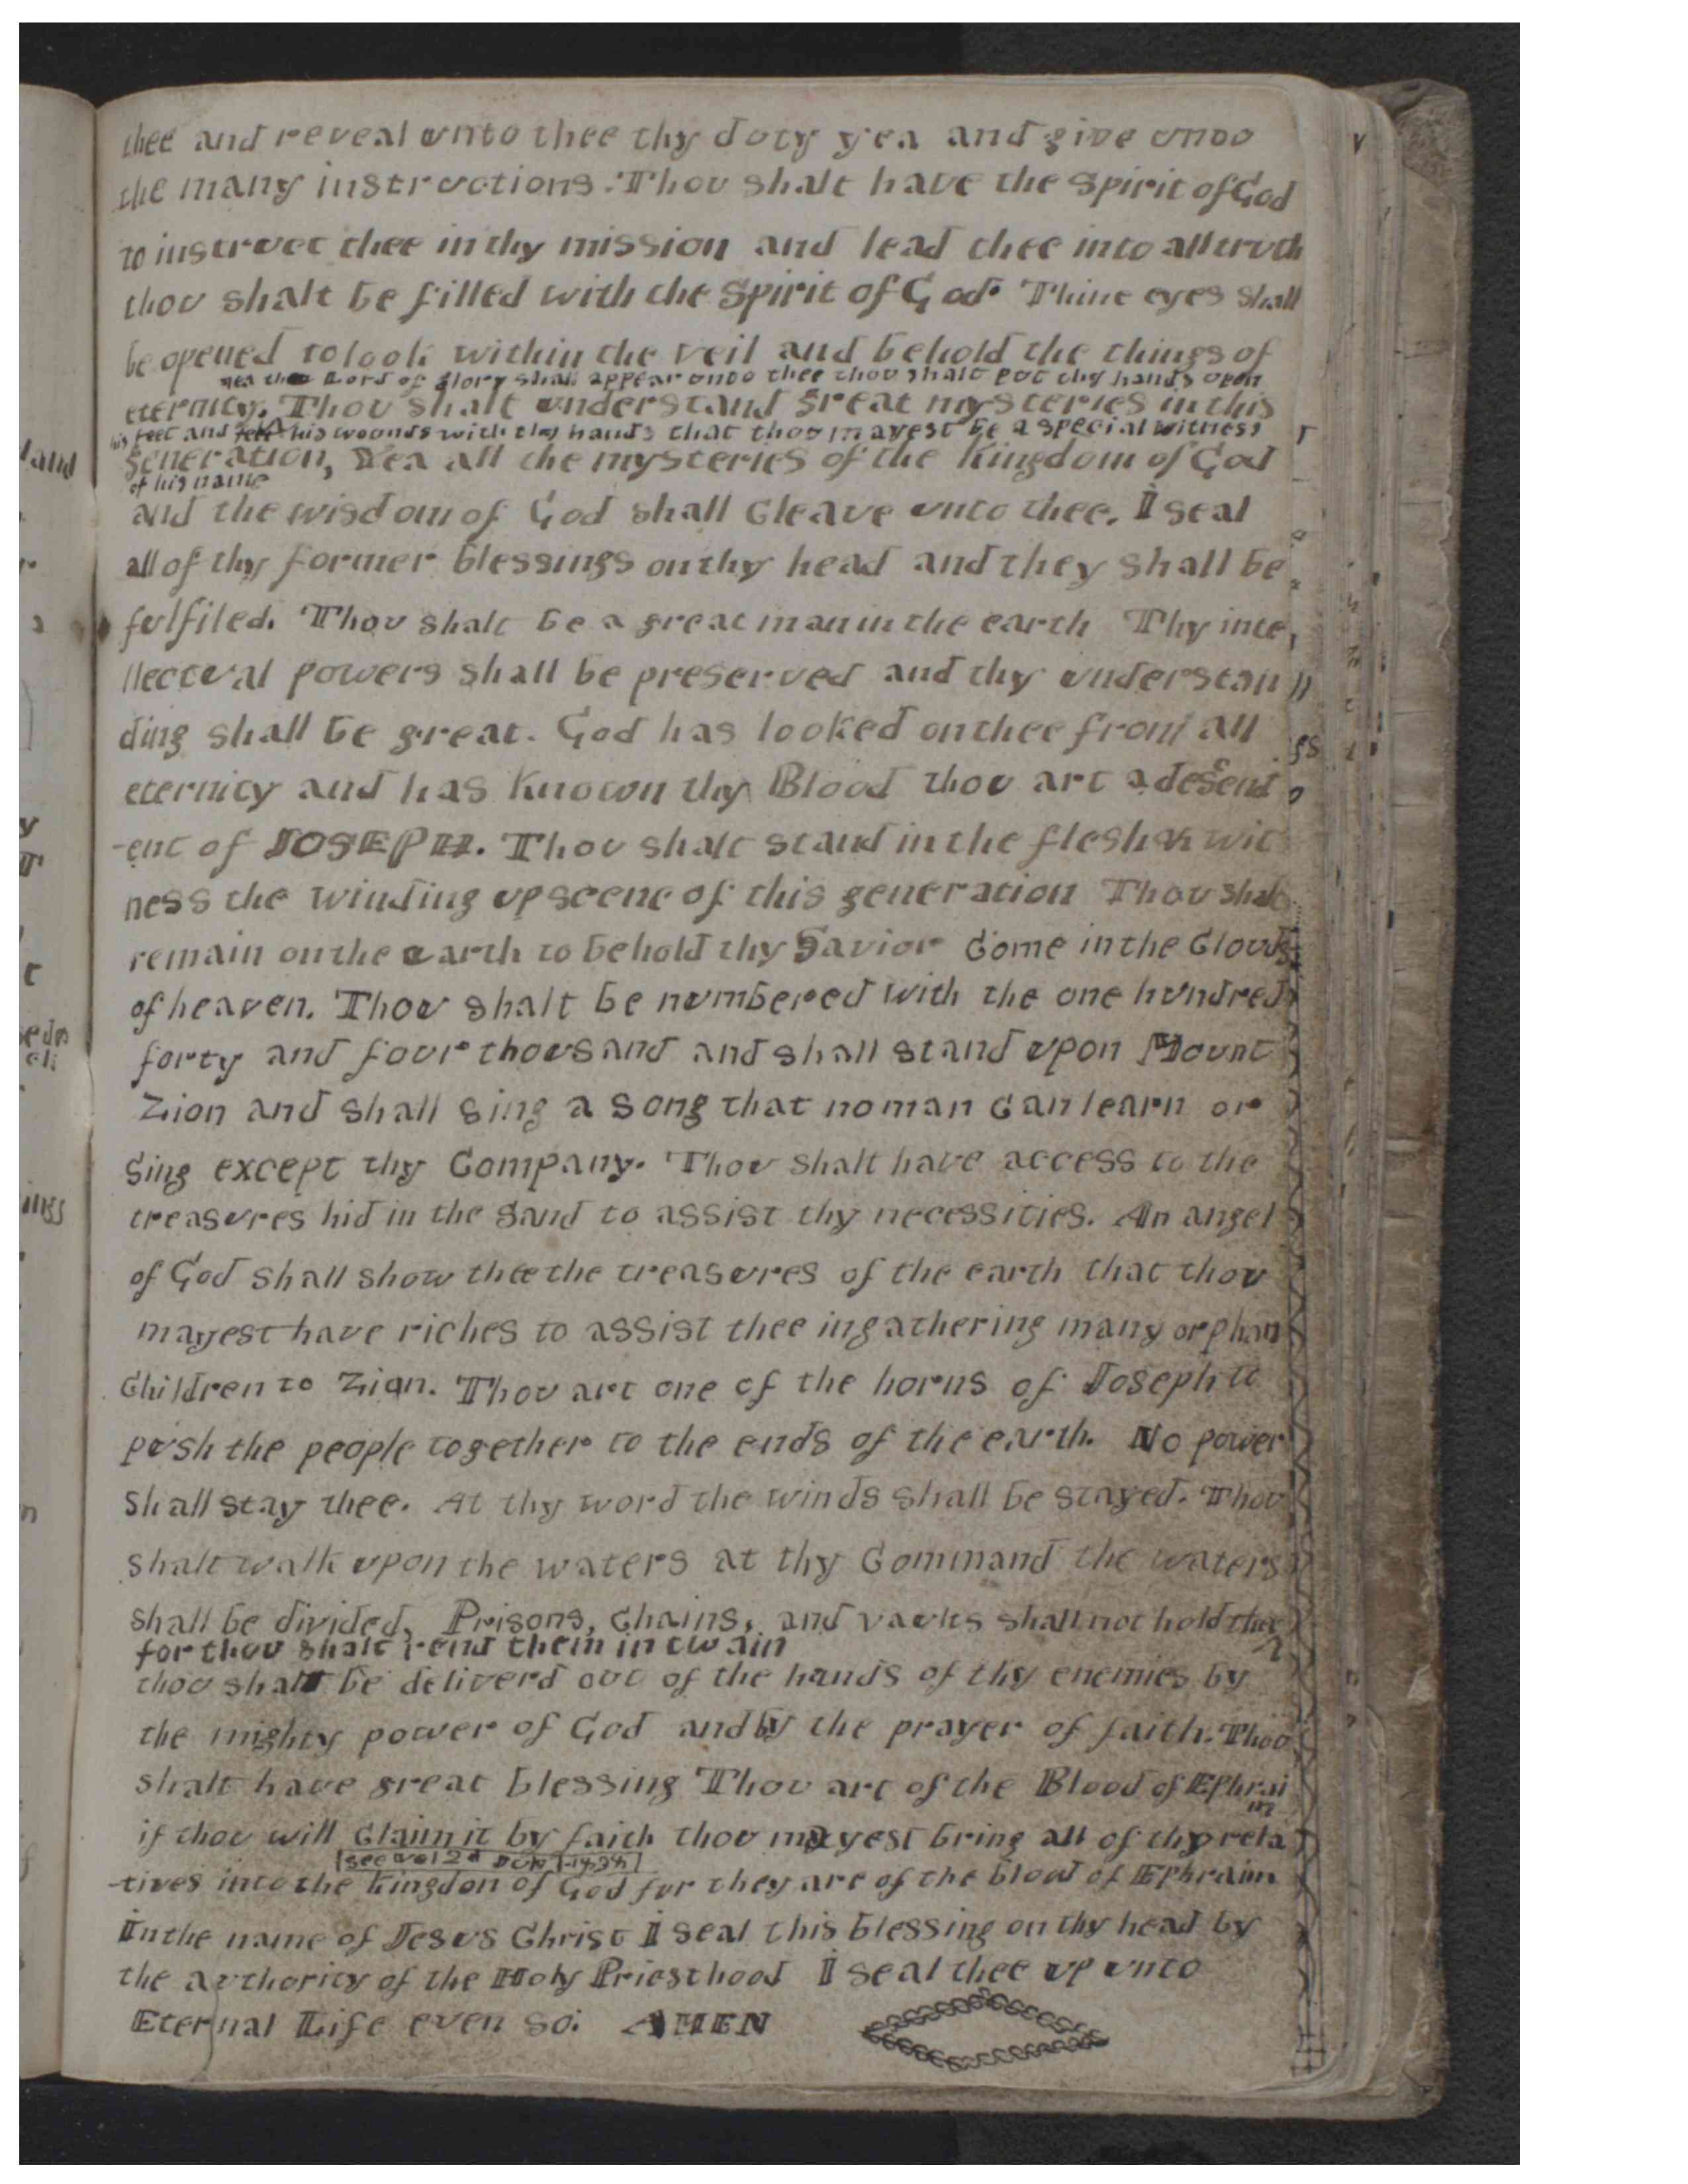 thee and reveal unto thee thy duty yea and give unto
the many instructions. Thou shalt have the Spirit of God
to instruct thee in thy mission and lead thee into all truth
thou shalt be filled with the Spirit of God. Thine eyes shall
be opened to look within the veil and behold the things of
yea the Lord of glory shall appear unto thee thou shalt put thy hands upon
eternity. Thou shalt understand great mysteries in this
his feet and feel his wounds with thy hands that thou mayest be a special witness
generation, Yea all the mysteries of the Kingdom of God
of his name
and the wisdom of God shall Cleave unto thee. I seal
all of thy former blessings on thy head and they shall be
fulfiled. Thou shalt be a great man in the earth Thy inte
llectual powers shall be preserved and thy understan
ding shall be great. God has looked on thee from all
eternity and has known thy Blood thou art a descend
-ent of JOSEPH. Thou shalt stand in the flesh & wit
ness the winding up scene of this generation Thou shalt
remain on the earth to behold thy Savior Come in the Clouds
of heaven. Thou shalt be numbered with the one hundred
forty and four thousand and shall stand upon Mount
Zion and shall sing a song that no man Can learn or
Sing except thy Company. Thou shalt have access to the
treasures hid in the sand to assist thy necessities. An angel
of God shall show thee the treasures of the earth that thou
mayest have riches to assist thee in gathering many orphan
Children to Zion. Thou art one of the horns of Joseph to
push the people together to the ends of the earth. No power
shall stay thee. At thy word the winds shall be stayed. Thou
shalt walk upon the waters at thy Command the waters
shall be divided, Prisons, Chains, and vaults shall not hold thee
for thou shalt rend them in twain
thou shalt be deliverd out of the hands of thy enemies by
the mighty power of God and by the prayer of faith. Thou
shalt have great blessing Thou art of the Blood of Ephrai
m
if thou will Claim it by faith thou mayest bring all of thy rela
see vol 2d
-tives into the kingdon of God for they are of the blood of Ephraim
In the name of Jesus Christ I seal this blessing on thy head by
the authority of the Holy Priesthood I seal thee up unto
Eternal Life even so. AMEN